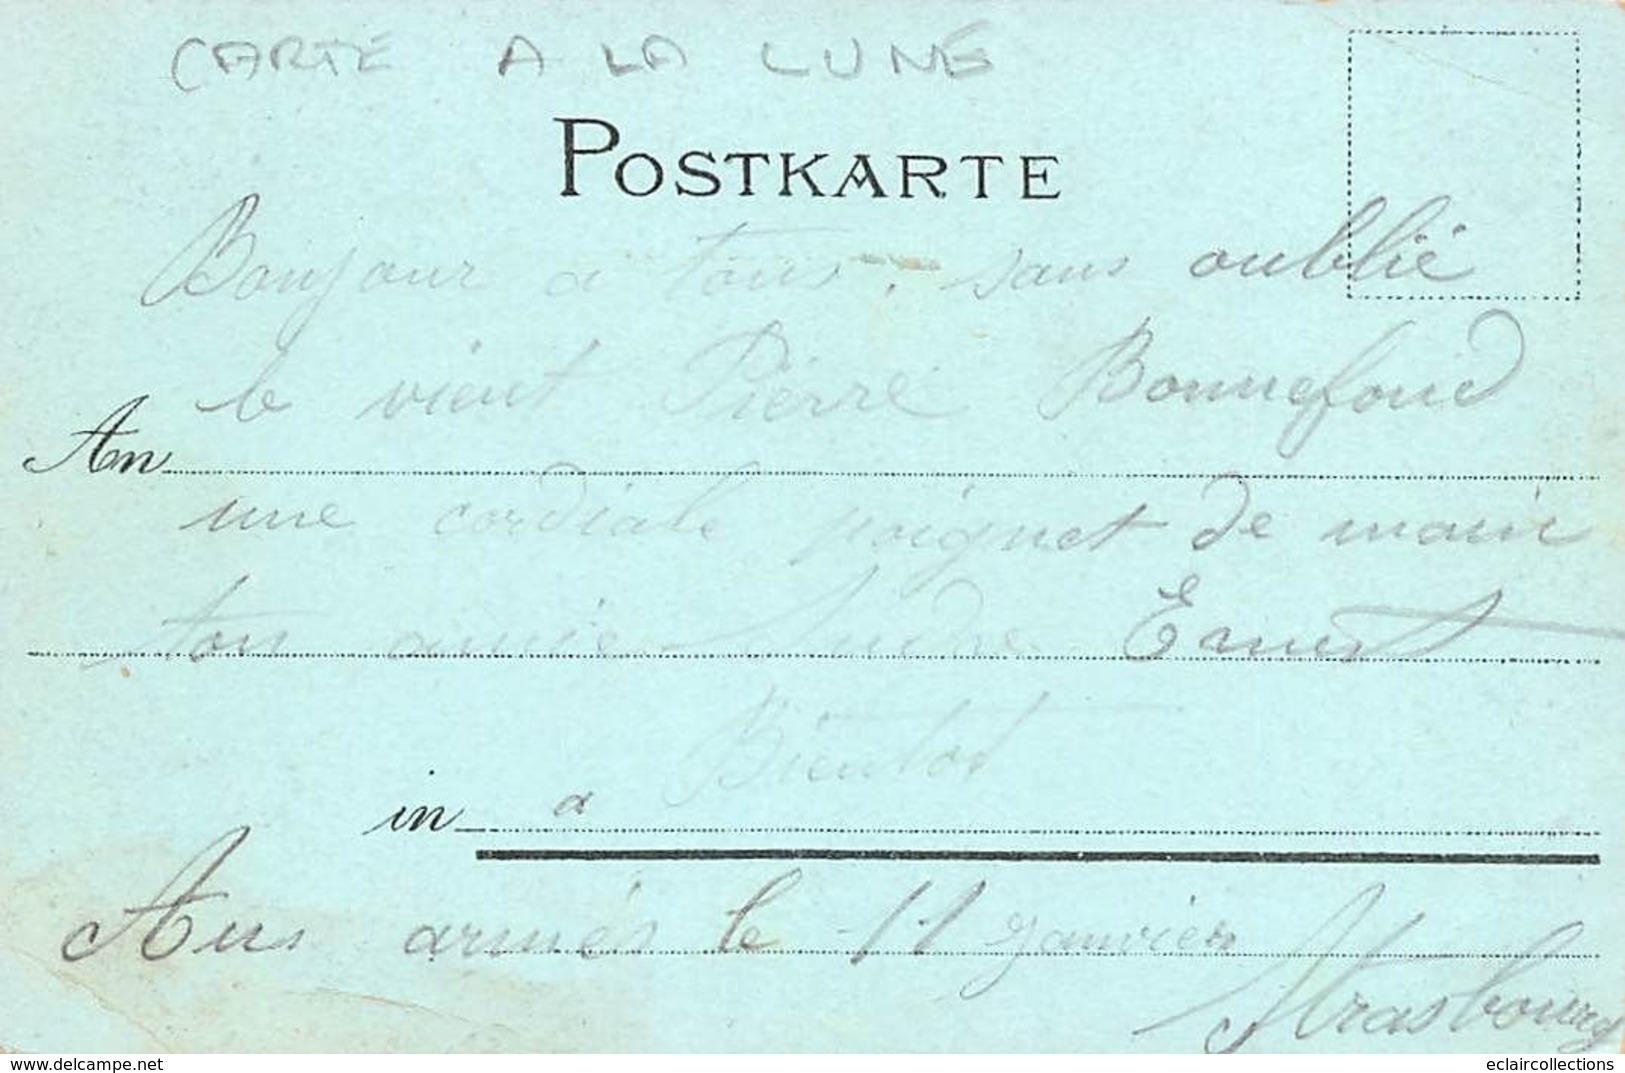 CARTE A LA LUNE
POSTKARTE
Bonjour a tous. sans oublié
le vieut Pierre Bonnefond
An
une cordiale poignet de main
ton amie Ernest
in a Bientot
Aus armés le 11 janvier
Strasbourg
delcampe.net
eclaircollections